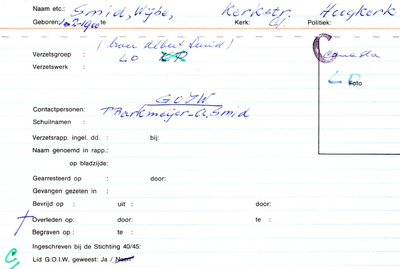 Naam etc.: Smid, Wijbe, Kerkstr. Hoogkerk
Geboren: te Kerk: Politiek:
(broer Albert Smid)
Verzetsgroep : LO KP
Verzetswerk :
Foto
GOIW
Contactpersonen: Barkmeijer - A. Smid
Schuilnamen :
Verzetsrapp. ingel. dd. : bij:
Naam genoemd in rapp.:
op bladzijde:
Gearresteerd op : door:
Gevangen gezeten in :
Bevrijd op : uit : door:
Overleden op: door: te :
Begraven op : te :
Ingeschreven bij de Stichting 40/45:
Lid G.O.I.W. geweest: Ja / Neen